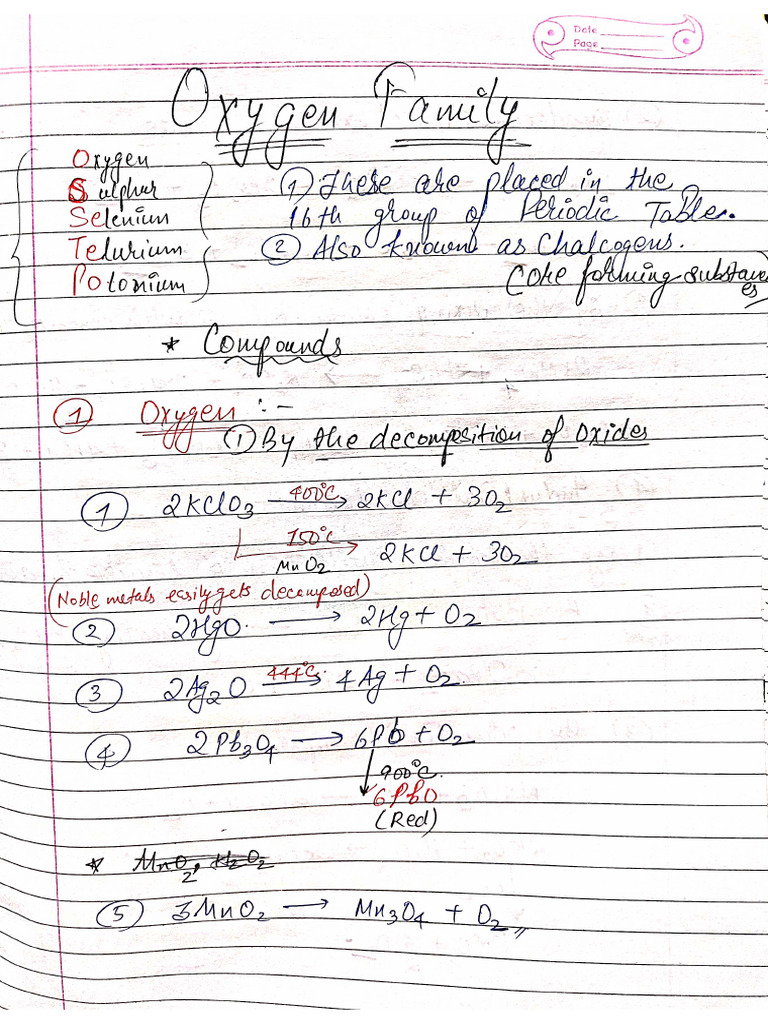 Date
Page
Oxygen Family
Oxygen
Sulphur
Selenium
Telurium
Polonium
① These are placed in the
16th group of Periodic Table.
② Also known as Chalcogens.
(Ore forming substances
* Compounds
① Oxygen :-
① By the decomposition of Oxides
① 2KClO3 400°C → 2KCl + 3O2
150°C MnO2 → 2KCl + 3O2
(Noble metals easily gets decomposed)
② 2HgO → 2Hg + O2
③ 2Ag2O 444°C → 4Ag + O2
④ 2Pb3O4 → 6Pb + O2
↓ 900°C
6PbO
(Red)
* MnO2, H2O2
⑤ 3MnO2 → Mn3O4 + O2,,